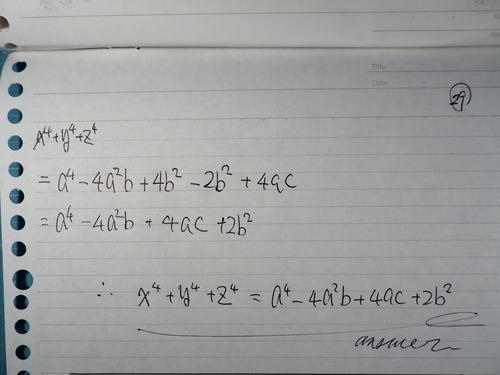 Title
Date
29
x⁴+y⁴+z⁴
= a⁴-4a²b+4b²-2b²+4ac
= a⁴-4a²b+4ac+2b²
∴ x⁴+y⁴+z⁴ = a⁴-4a²b+4ac+2b²
answer